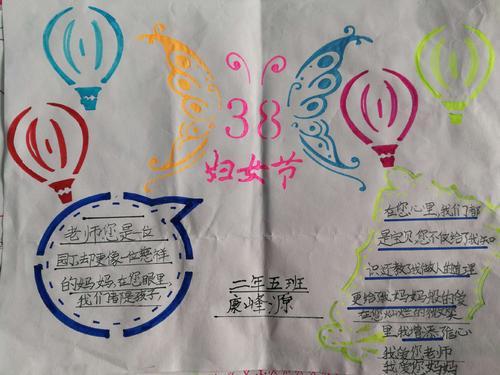 38
妇女节
老师您是一位
园丁却更像一位慈祥
的妈妈在您眼里,
我们皆是孩子,
二年五班
康峰源
在您心里,我们都
是宝贝,您不仅给了我知
识还教了我做人的道理
更给了我妈妈般的爱
在您灿烂的微笑
里,我增添了信心
我爱您老师
我爱您妈妈